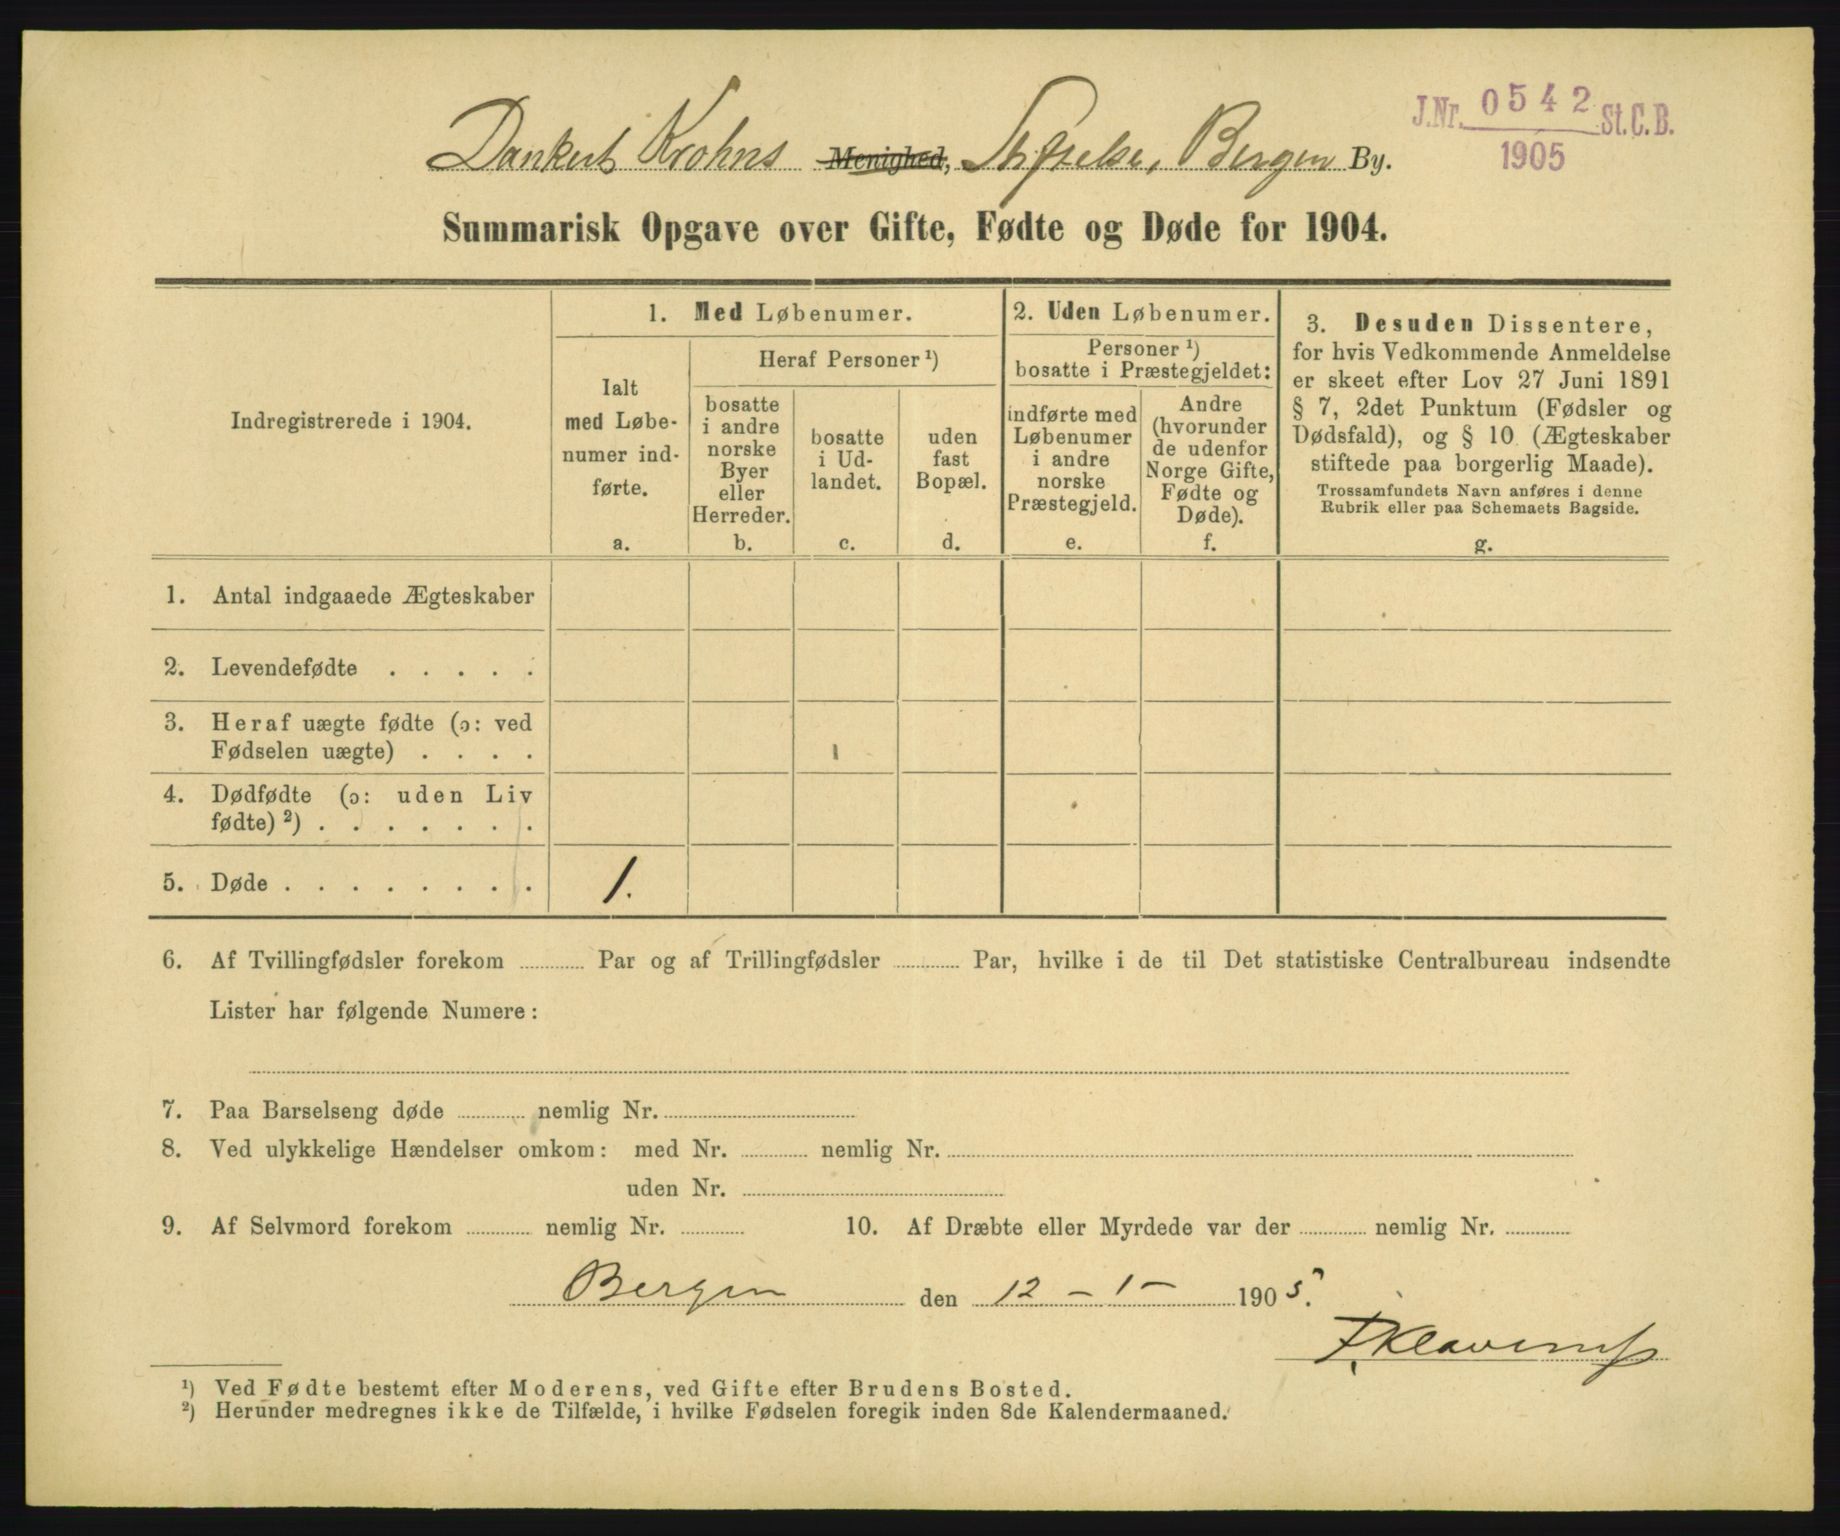 J.Nr. 0542 St.C.B.
1905
Dankert Krohns Menighed, Stiftelse, Bergen By.
Summarisk Opgave over Gifte, Fødte og Døde for 1904.
Indregistrerede i 1904.
1. Med Løbenumer.
Ialt
med Løbe-
numer ind-
førte.
a.
Heraf Personer ¹)
bosatte
i andre
norske
Byer
eller
Herreder.
b.
bosatte
i Ud-
landet.
c.
uden
fast
Bopæl.
d.
2. Uden Løbenumer.
Personer ¹)
bosatte i Præstegjeldet:
indførte med
Løbenumer
i andre
norske
Præstegjeld.
e.
Andre
(hvorunder
de udenfor
Norge Gifte,
Fødte og
Døde).
f.
3. Desuden Dissentere,
for hvis Vedkommende Anmeldelse
er skeet efter Lov 27 Juni 1891
§ 7, 2det Punktum (Fødsler og
Dødsfald), og § 10 (Ægteskaber
stiftede paa borgerlig Maade).
Trossamfundets Navn anføres i denne
Rubrik eller paa Schemaets Bagside.
g.
1. Antal indgaaede Ægteskaber
2. Levendefødte . . . . .
3. Heraf uægte fødte (ɔ: ved
Fødselen uægte) . . . .
4. Dødfødte (ɔ: uden Liv
fødte) ²) . . . . . . .
5. Døde . . . . . . . . 1.
6. Af Tvillingfødsler forekom ............ Par og af Trillingfødsler ............ Par, hvilke i de til Det statistiske Centralbureau indsendte
Lister har følgende Numere:
7. Paa Barselseng døde ............ nemlig Nr. ............
8. Ved ulykkelige Hændelser omkom: med Nr. ............ nemlig Nr. ............
uden Nr. ............
9. Af Selvmord forekom ............ nemlig Nr. ............ 10. Af Dræbte eller Myrdede var der ............ nemlig Nr. ............
Bergen den 12 – 1 – 1905.
¹) Ved Fødte bestemt efter Moderens, ved Gifte efter Brudens Bosted.
²) Herunder medregnes ikke de Tilfælde, i hvilke Fødselen foregik inden 8de Kalendermaaned.